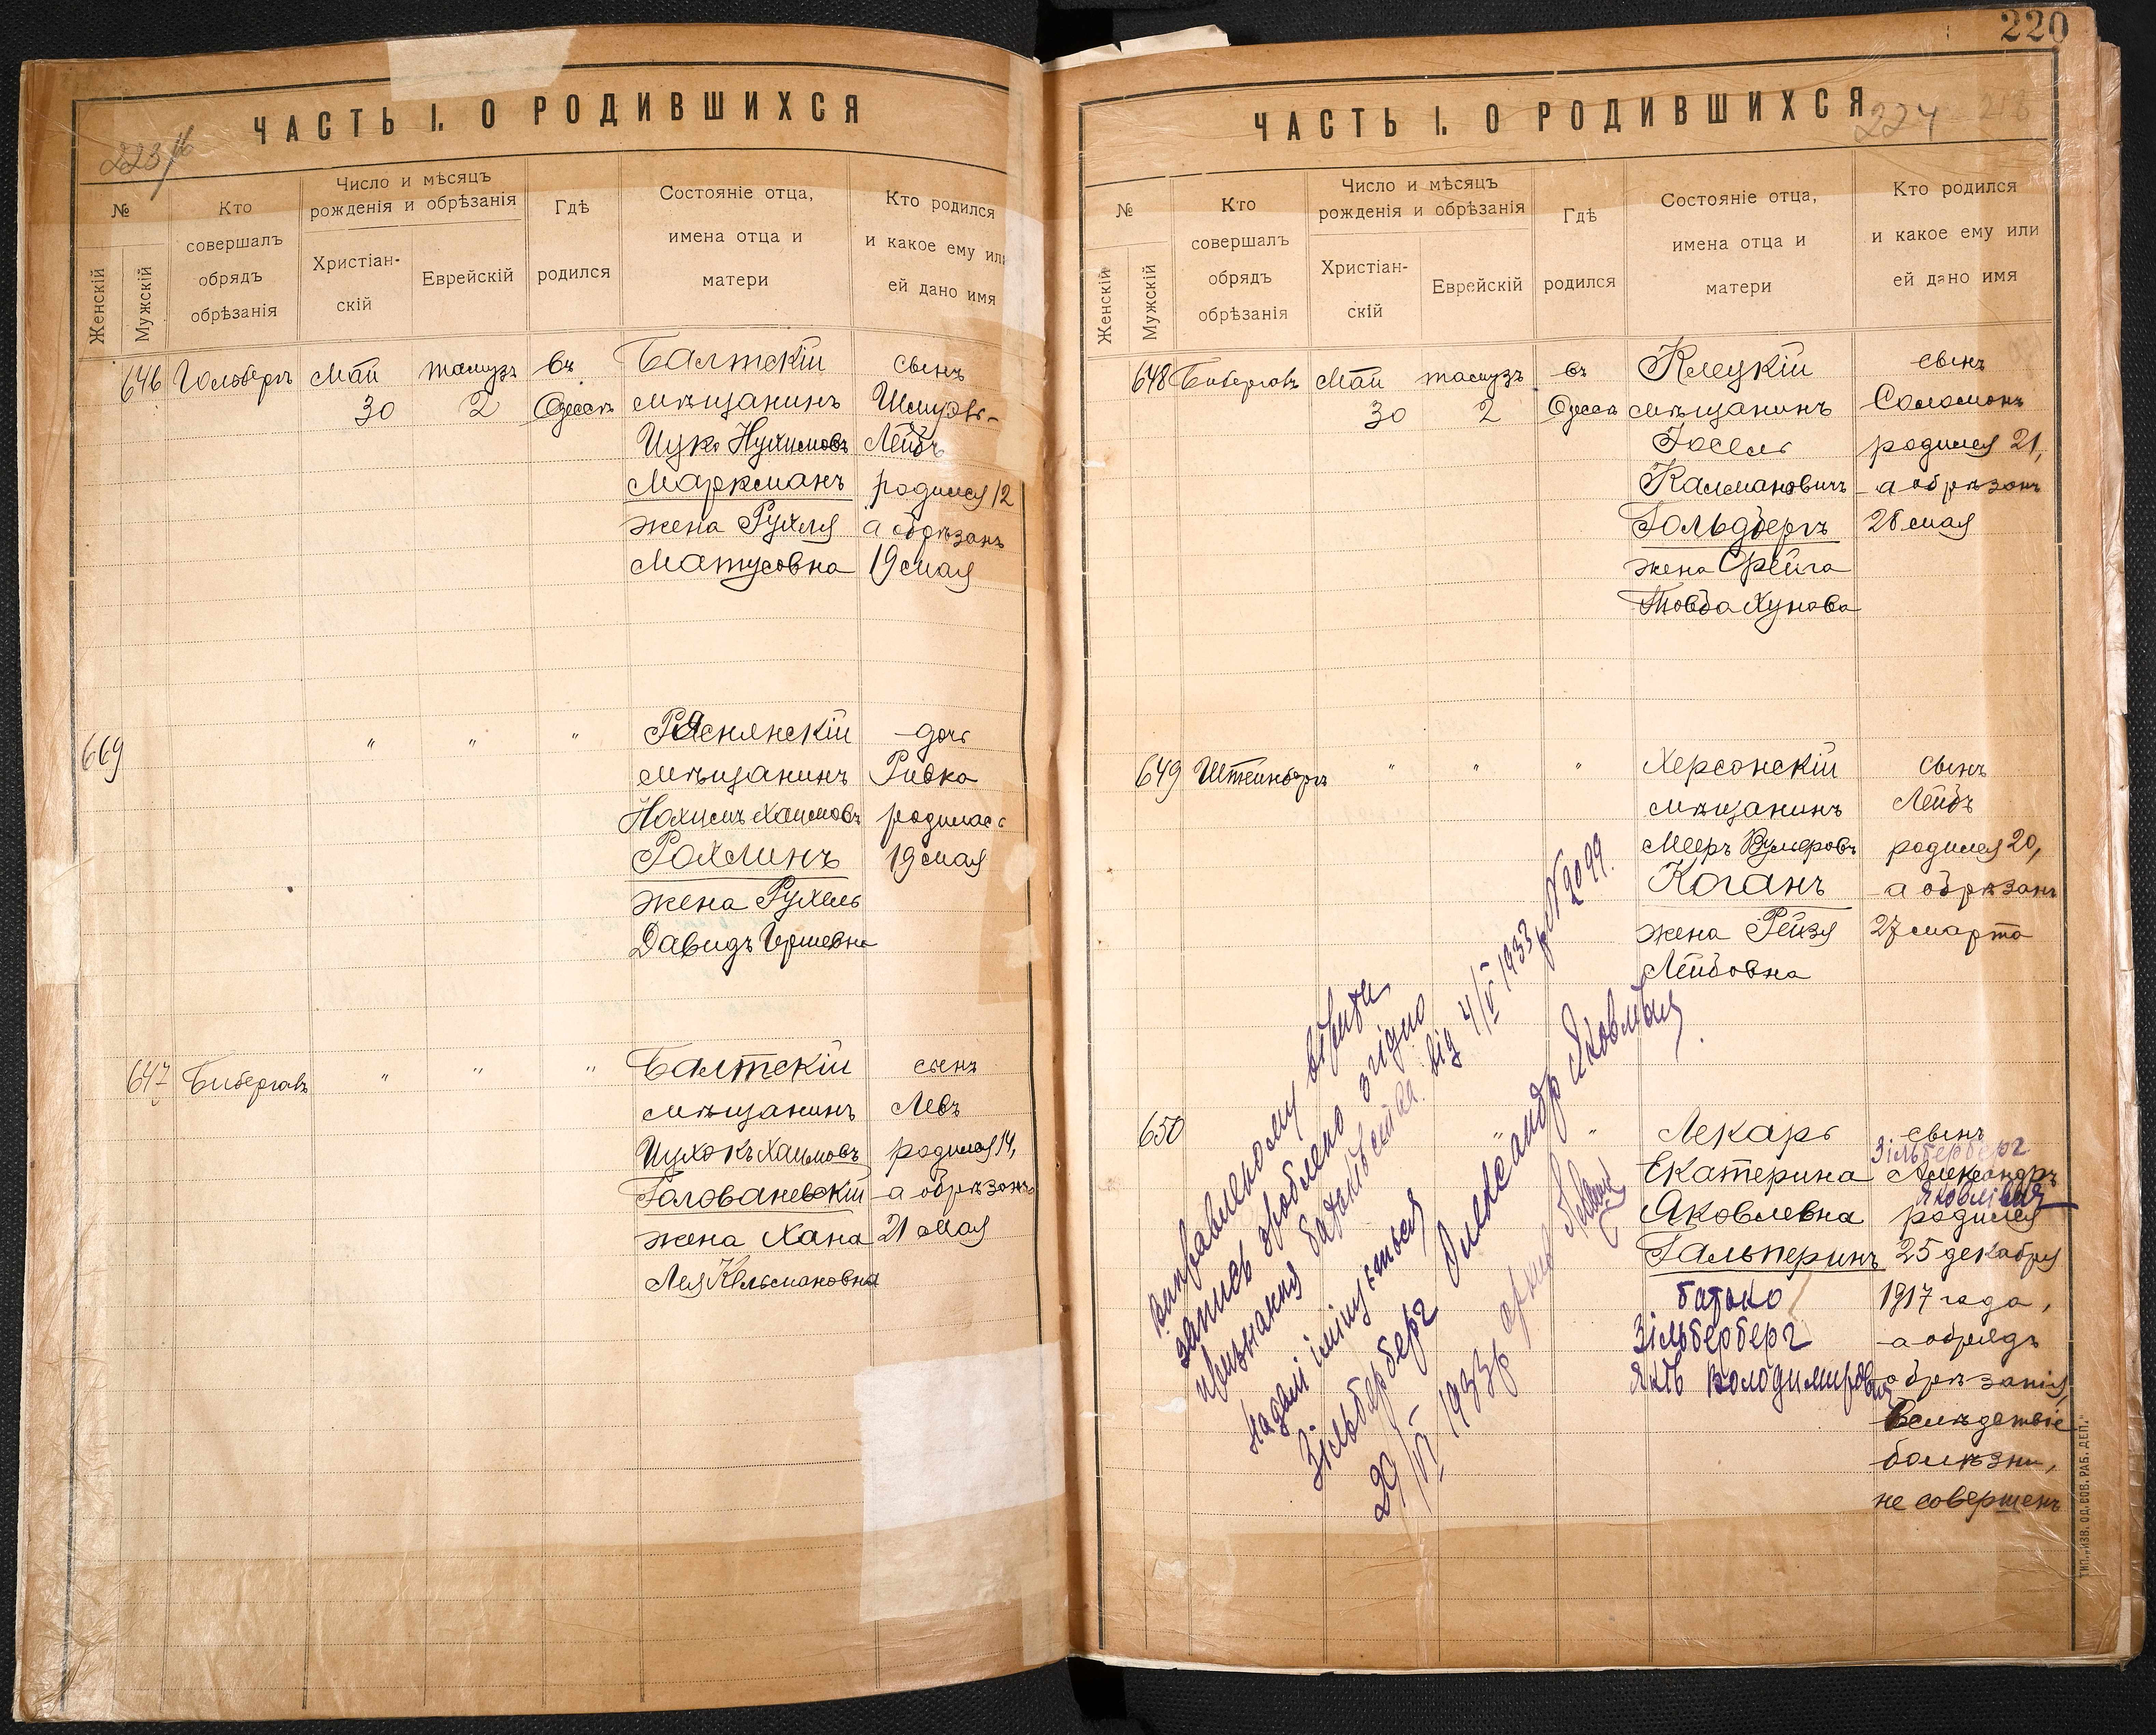 ЧАСТЬ I. О РОДИВШИХСЯ
223/
№
Женскій
Мужскій
Кто
совершалъ
обрядъ
обрѣзанія
Число и мѣсяцъ
рожденія и обрѣзанія
Христіан-
скій
Еврейскій
Гдѣ
родился
Состояніе отца,
имена отца и
матери
Кто родился
и какое ему или
ей дано имя
646 Гольдбергъ Май тамузъ въ Балтскій сынъ
30 2 Одессѣ мѣщанинъ Шмуэль-
Ицко Нухимовъ Лейбъ
Марксманъ родился 12
жена Рухля а обрѣзанъ
Матусовна 19 мая
669 " " " Ряснянскій дочь
мѣщанинъ Ривка
Нохимъ Хаимовъ родилась
Рохлинъ 19 мая
жена Рухель
Давидъ Гершевна
647 Бибергалъ " " " Балтскій сынъ
мѣщанинъ Левъ
Ицхокъ Хаимовъ родился 14,
Голованевскій а обрѣзанъ
жена Хана 21 мая
Лея Кельмановна
220
ЧАСТЬ I. О РОДИВШИХСЯ
224 218
№
Женскій
Мужскій
Кто
совершалъ
обрядъ
обрѣзанія
Число и мѣсяцъ
рожденія и обрѣзанія
Христіан-
скій
Еврейскій
Гдѣ
родился
Состояніе отца,
имена отца и
матери
Кто родился
и какое ему или
ей дано имя
648 Бибергалъ Май тамузъ въ Клецкій сынъ
30 2 Одессѣ мѣщанинъ Соломонъ
Іосель родился 21,
Калмановичъ а обрѣзанъ
Гольдбергъ 28 мая
жена Фрейга
Товба Хунова
649 Штейнбергъ " " " Херсонскій сынъ
мѣщанинъ Лейбъ
Мееръ Вульфовъ родился 20,
Коганъ а обрѣзанъ
жена Рейзя 27 марта
Лейбовна
650 " " Лекарь сынъ
Зільберберг
Екатерина Александръ
Яковлівич
Яковлевна родился
Гальперинъ 25 декабря
батько 1917 года,
Зільберберг а обрядъ
Яків Володимирович обрѣзанія,
вслѣдствіе
болѣзни,
не совершенъ
виправленому вірити
запись зроблено згідно
признання батьківства від 4/V 1933 р № 2099.
надалі іменується
Зільберберг Олександр Яковлівич.
29/VI 1933 р архів
ТИП. „ИЗВ. ОД. СОВ. РАБ. ДЕП."